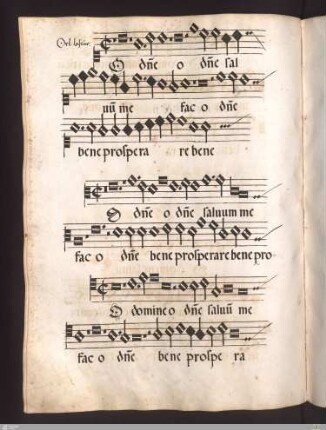 Orl. lassus.
O dñe o dñe sal
uũ me fac o dñe
bene prospera re bene
O dñe o dñe saluum me
fac o dñe bene prosperare bene pro
O domine o dñe saluũ me
fac o dñe bene prospe ra